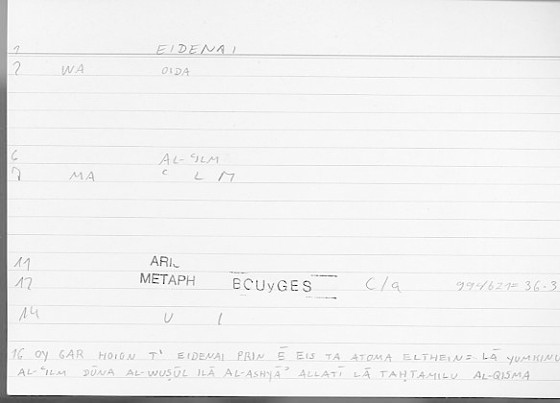 1 EIDENAI
2 WA OIDA
6 AL-ʿILM
7 MA ʿ L M
11 ARIL
12 METAPH BOUyGES C/a 994b21= 36.3
14 V I
16 OY GAR HOION T' EIDENAI PRIN Ē EIS TA ATOMA ELTHEIN= LĀ YUMKINU
AL-ʿILM DŪNA AL-WUṢŪL ILĀ AL-ASHYĀʾ ALLATĪ LĀ TAḤTAMILU AL-QISMA